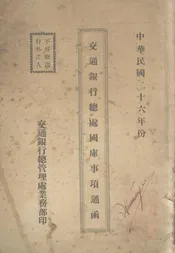 中華民國二十六年份
交通銀行總處國庫事項通函
交通銀行總管理處業務部印